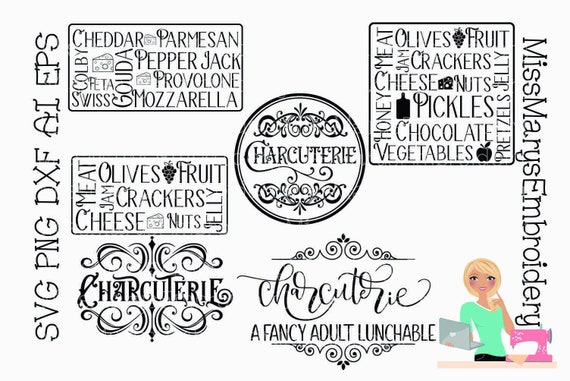 SVG PNG DXF AI EPS
CHEDDAR PARMESAN
COLBY FETA SWISS GOUDA PEPPER JACK
PROVOLONE
MOZZARELLA
MEAT JAM OLIVES FRUIT
CRACKERS
CHEESE NUTS JELLY
HONEY PICKLES PRETZELS
CHOCOLATE
VEGETABLES
CHARCUTERIE
MEAT JAM OLIVES FRUIT
CRACKERS
CHEESE NUTS JELLY
CHARCUTERIE
charcuterie
A FANCY ADULT LUNCHABLE
MissMarysEmbroidery